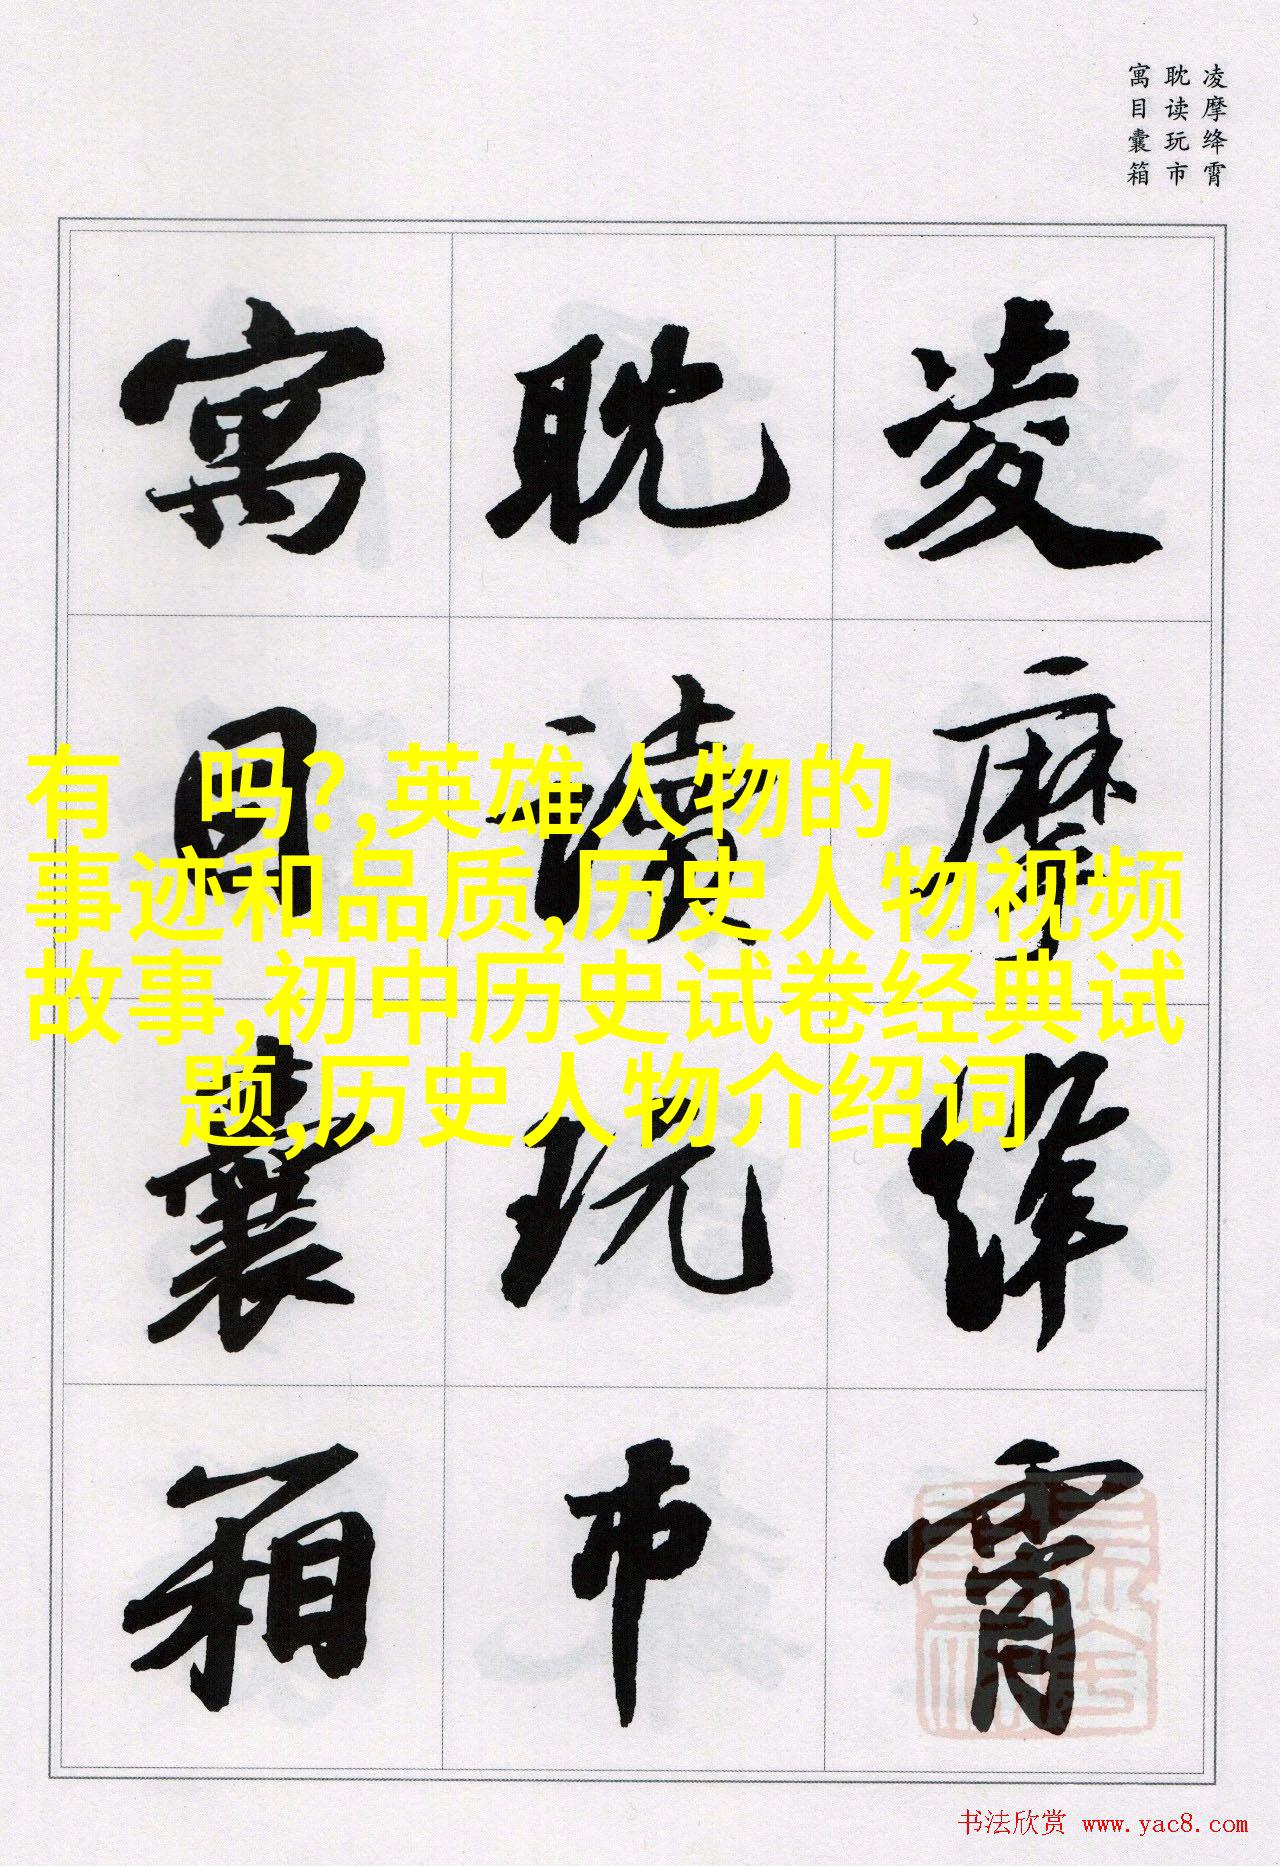 凌摩绛霄
耽读玩市
寓目囊箱
凌摩绛霄
耽读玩市
寓目囊箱
有 吗?,英雄人物的
事迹和品质,历史人物视频
故事,初中历史试卷经典试
题,历史人物介绍词
书法欣赏 www.yac8.com